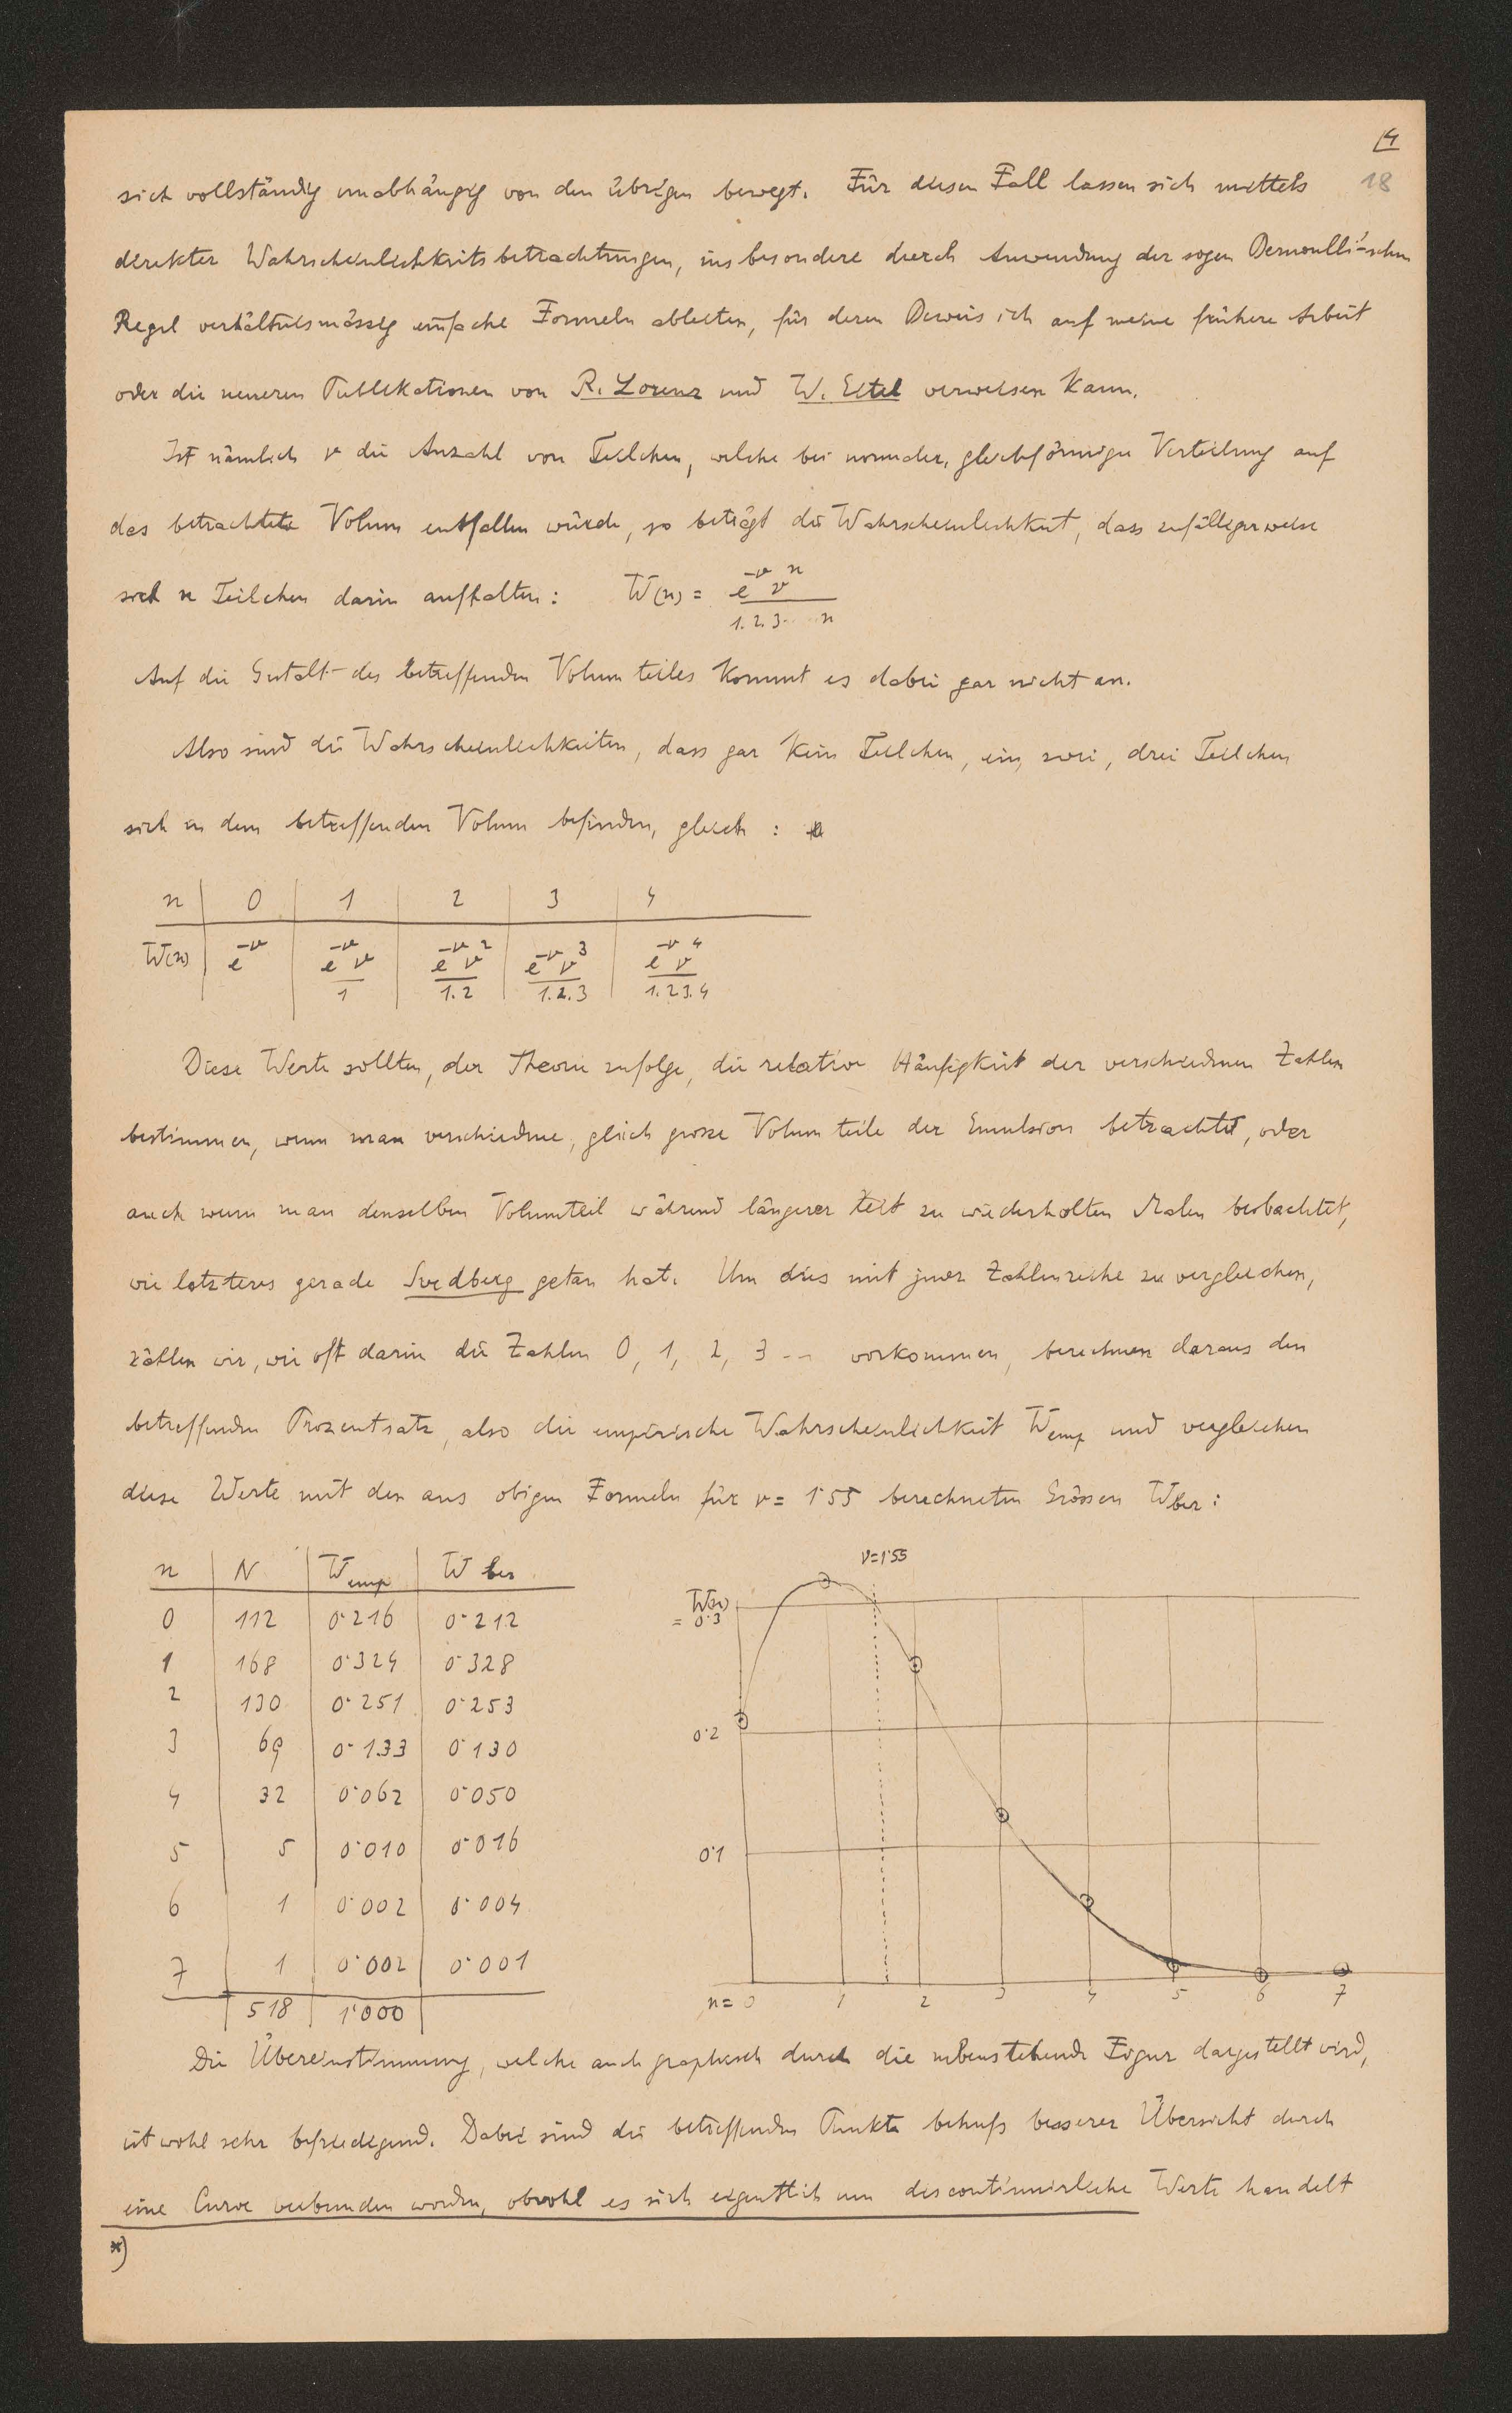 4
18
sich vollständig unabhängig von den übrigen bewegt. Für diesen Fall lassen sich mittels
direkter Wahrscheinlichkeitsbetrachtungen, insbesondere durch Anwendung der sogen Bernoulli'schen
Regel verhältnismässig einfache Formeln ableiten, für deren Beweis ich auf meine frühere Arbeit
oder die neueren Publikationen von R. Lorenz und W. Eitel verweisen kann.
Ist nämlich ν die Anzahl von Teilchen, welche bei normaler, gleichförmiger Verteilung auf
das betrachtete Volum entfallen würde, so beträgt die Wahrscheinlichkeit, dass zufälligerweise
sich n Teilchen darin aufhalten: W(n) = e^-ν ν^n / 1.2.3... n
Auf die Gestalt des betreffenden Volumteiles kommt es dabei gar nicht an.
Also sind die Wahrscheinlichkeiten, dass gar kein Teilchen, ein, zwei, drei Teilchen
sich in dem betreffenden Volum befinden, gleich :
n | 0 | 1 | 2 | 3 | 4
W(n) | e^-ν | e^-ν ν / 1 | e^-ν ν^2 / 1.2 | e^-ν ν^3 / 1.2.3 | e^-ν ν^4 / 1.2.3.4
Diese Werte sollten, der Theorie zufolge, die relative Häufigkeit der verschiednen Zahlen
bestimmen, wenn man verschiedne, gleich grosse Volumteile der Emulsion betrachtet, oder
auch wenn man denselben Volumteil während längerer Zeit zu wiederholten Malen beobachtet,
wie letzteres gerade Svedberg getan hat. Um dies mit jener Zahlenreihe zu vergleichen,
zählen wir, wie oft darin die Zahlen 0, 1, 2, 3 -- vorkommen, berechnen daraus den
betreffenden Prozentsatz, also die empirische Wahrscheinlichkeit Wemp und vergleichen
diese Werte mit den aus obigen Formeln für ν = 1·55 berechneten Grössen Wber :
n | N | Wemp | W ber
0 | 112 | 0·216 | 0·212
1 | 168 | 0·324 | 0·328
2 | 130 | 0·251 | 0·253
3 | 69 | 0·133 | 0·130
4 | 32 | 0·062 | 0·050
5 | 5 | 0·010 | 0·016
6 | 1 | 0·002 | 0·004
7 | 1 | 0·002 | 0·001
518 | 1·000
ν=1·55
W(n)
= 0·3
0·2
0·1
n = 0 1 2 3 4 5 6 7
Die Übereinstimmung, welche auch graphisch durch die nebenstehende Figur dargestellt wird,
ist wohl sehr befriedigend. Dabei sind die betreffenden Punkte behufs besserer Übersicht durch
eine Curve verbunden worden, obwohl es sich eigentlich um discontinuirliche Werte handelt
*)